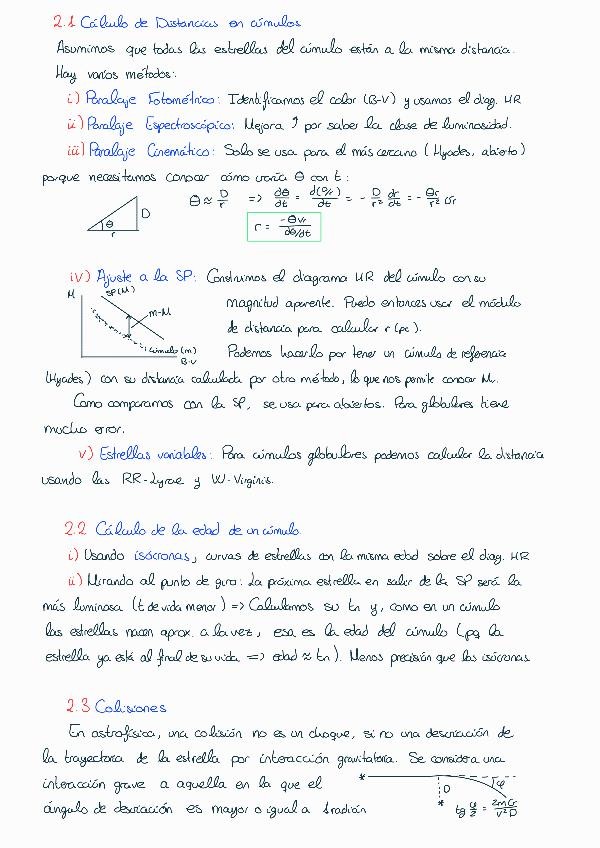 2.1 Cálculo de Distancias en cúmulos
Asumimos que todas las estrellas del cúmulo están a la misma distancia.
Hay varios métodos:
i) Paralaje Fotométrico: Identificamos el color (B-V) y usamos el diag. HR
ii) Paralaje Espectroscópico: Mejora ↑ por saber la clase de luminosidad.
iii) Paralaje Cinemático: Solo se usa para el más cercano (Hyades, abierto)
porque necesitamos conocer cómo varía θ con t:
D
θ
r
θ ≈ D/r => dθ/dt = d(D/r)/dt = - D/r² dr/dt = - θr/r² vr
r = -θvr / dθ/dt
iv) Ajuste a la SP: Construimos el diagrama HR del cúmulo con su
magnitud aparente. Puedo entonces usar el módulo
de distancia para calcular r (pc).
Podemos hacerlo por tener un cúmulo de referencia
M
SP(M)
m-M
cúmulo (m)
B-V
(Hyades) con su distancia calculada por otro método, lo que nos permite conocer M.
Como comparamos con la SP, se usa para abiertos. Para globulares tiene
mucho error.
v) Estrellas variables: Para cúmulos globulares podemos calcular la distancia
usando las RR-Lyrae y W-Virginis.
2.2 Cálculo de la edad de un cúmulo.
i) Usando isócronas, curvas de estrellas con la misma edad sobre el diag. HR
ii) Mirando al punto de giro: La próxima estrella en salir de la SP será la
más luminosa (t de vida menor) => Calculamos su tn y, como en un cúmulo
las estrellas nacen aprox. a la vez, esa es la edad del cúmulo (pq la
estrella ya está al final de su vida => edad ≈ tn). Menos precisión que las isócronas
2.3 Colisiones
En astrofísica, una colisión no es un choque, si no una desviación de
la trayectoria de la estrella por interacción gravitatoria. Se considera una
interacción grave a aquella en la que el
ángulo de desviación es mayor o igual a 1 radián
D
φ
tg φ/2 = 2mG/v²D